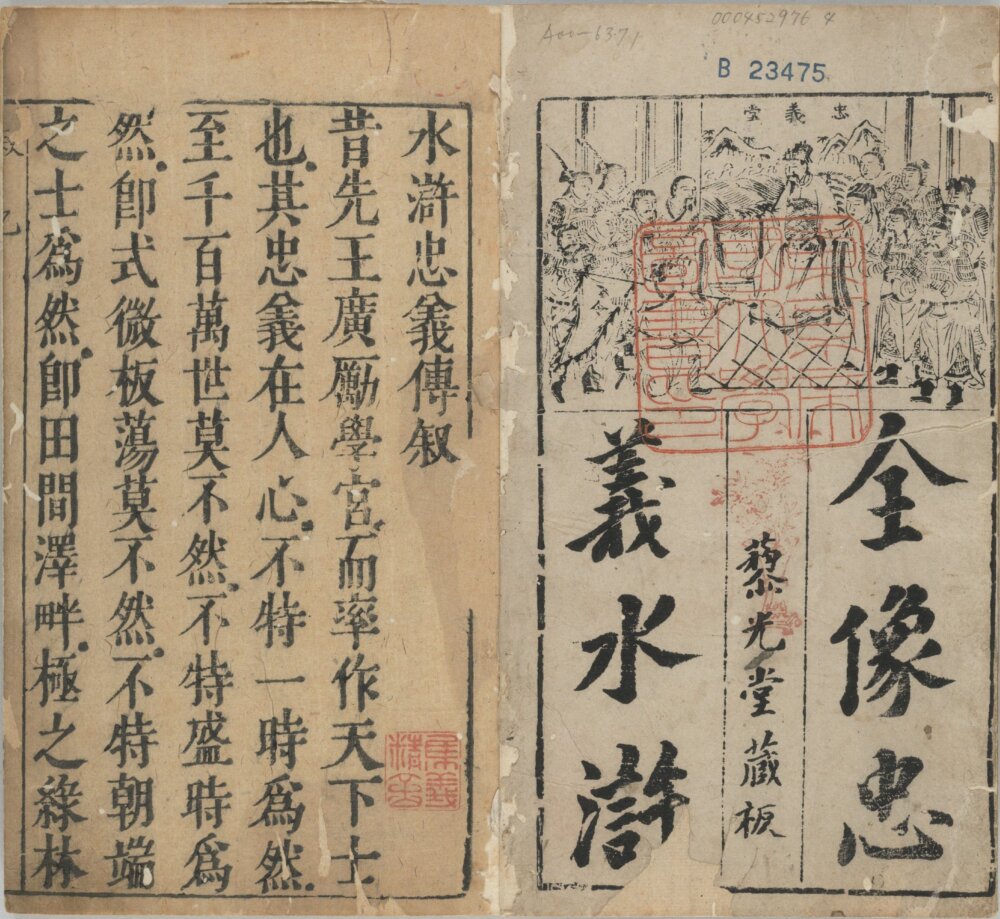 000452976 4
A00-6371
B 23475
忠義堂
全像忠
藜光堂藏板
義水滸
水滸忠義傳叙
昔先王廣勵學宮而率作天下士
也。其忠義在人心。不特一時爲然。
至千百萬世莫不然。不特盛時爲
然。卽式微板蕩莫不然。不特朝端
之士爲然。卽田間澤畔。極之綠林
集義精舍